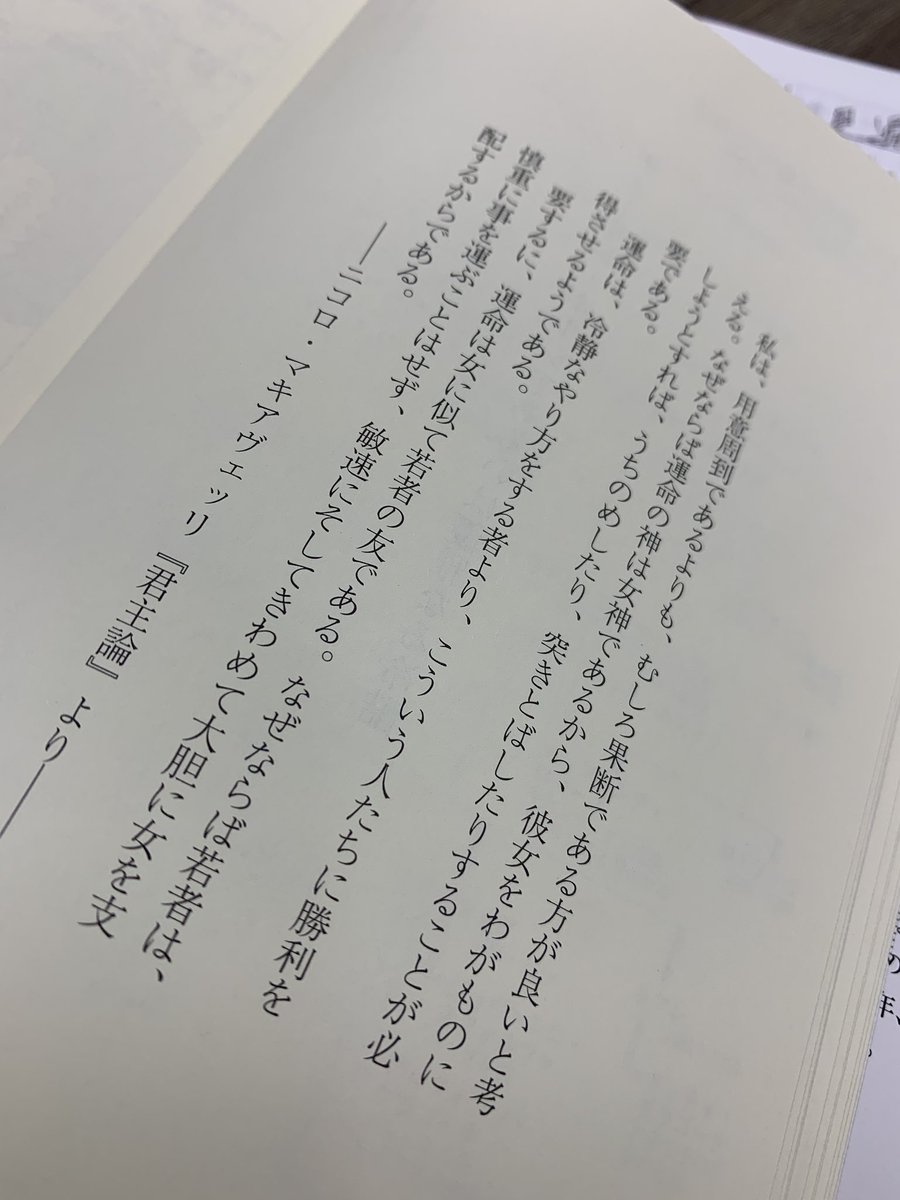 私は、用意周到であるよりも、むしろ果断である方が良いと考
える。なぜならば運命の神は女神であるから、彼女をわがものに
しようとすれば、うちのめしたり、突きとばしたりすることが必
要である。
運命は、冷静なやり方をする者より、こういう人たちに勝利を
得させるようである。
要するに、運命は女に似て若者の友である。なぜならば若者は、
慎重に事を運ぶことはせず、敏速にそしてきわめて大胆に女を支
配するからである。
――ニコロ・マキアヴェッリ『君主論』より――
の
年、